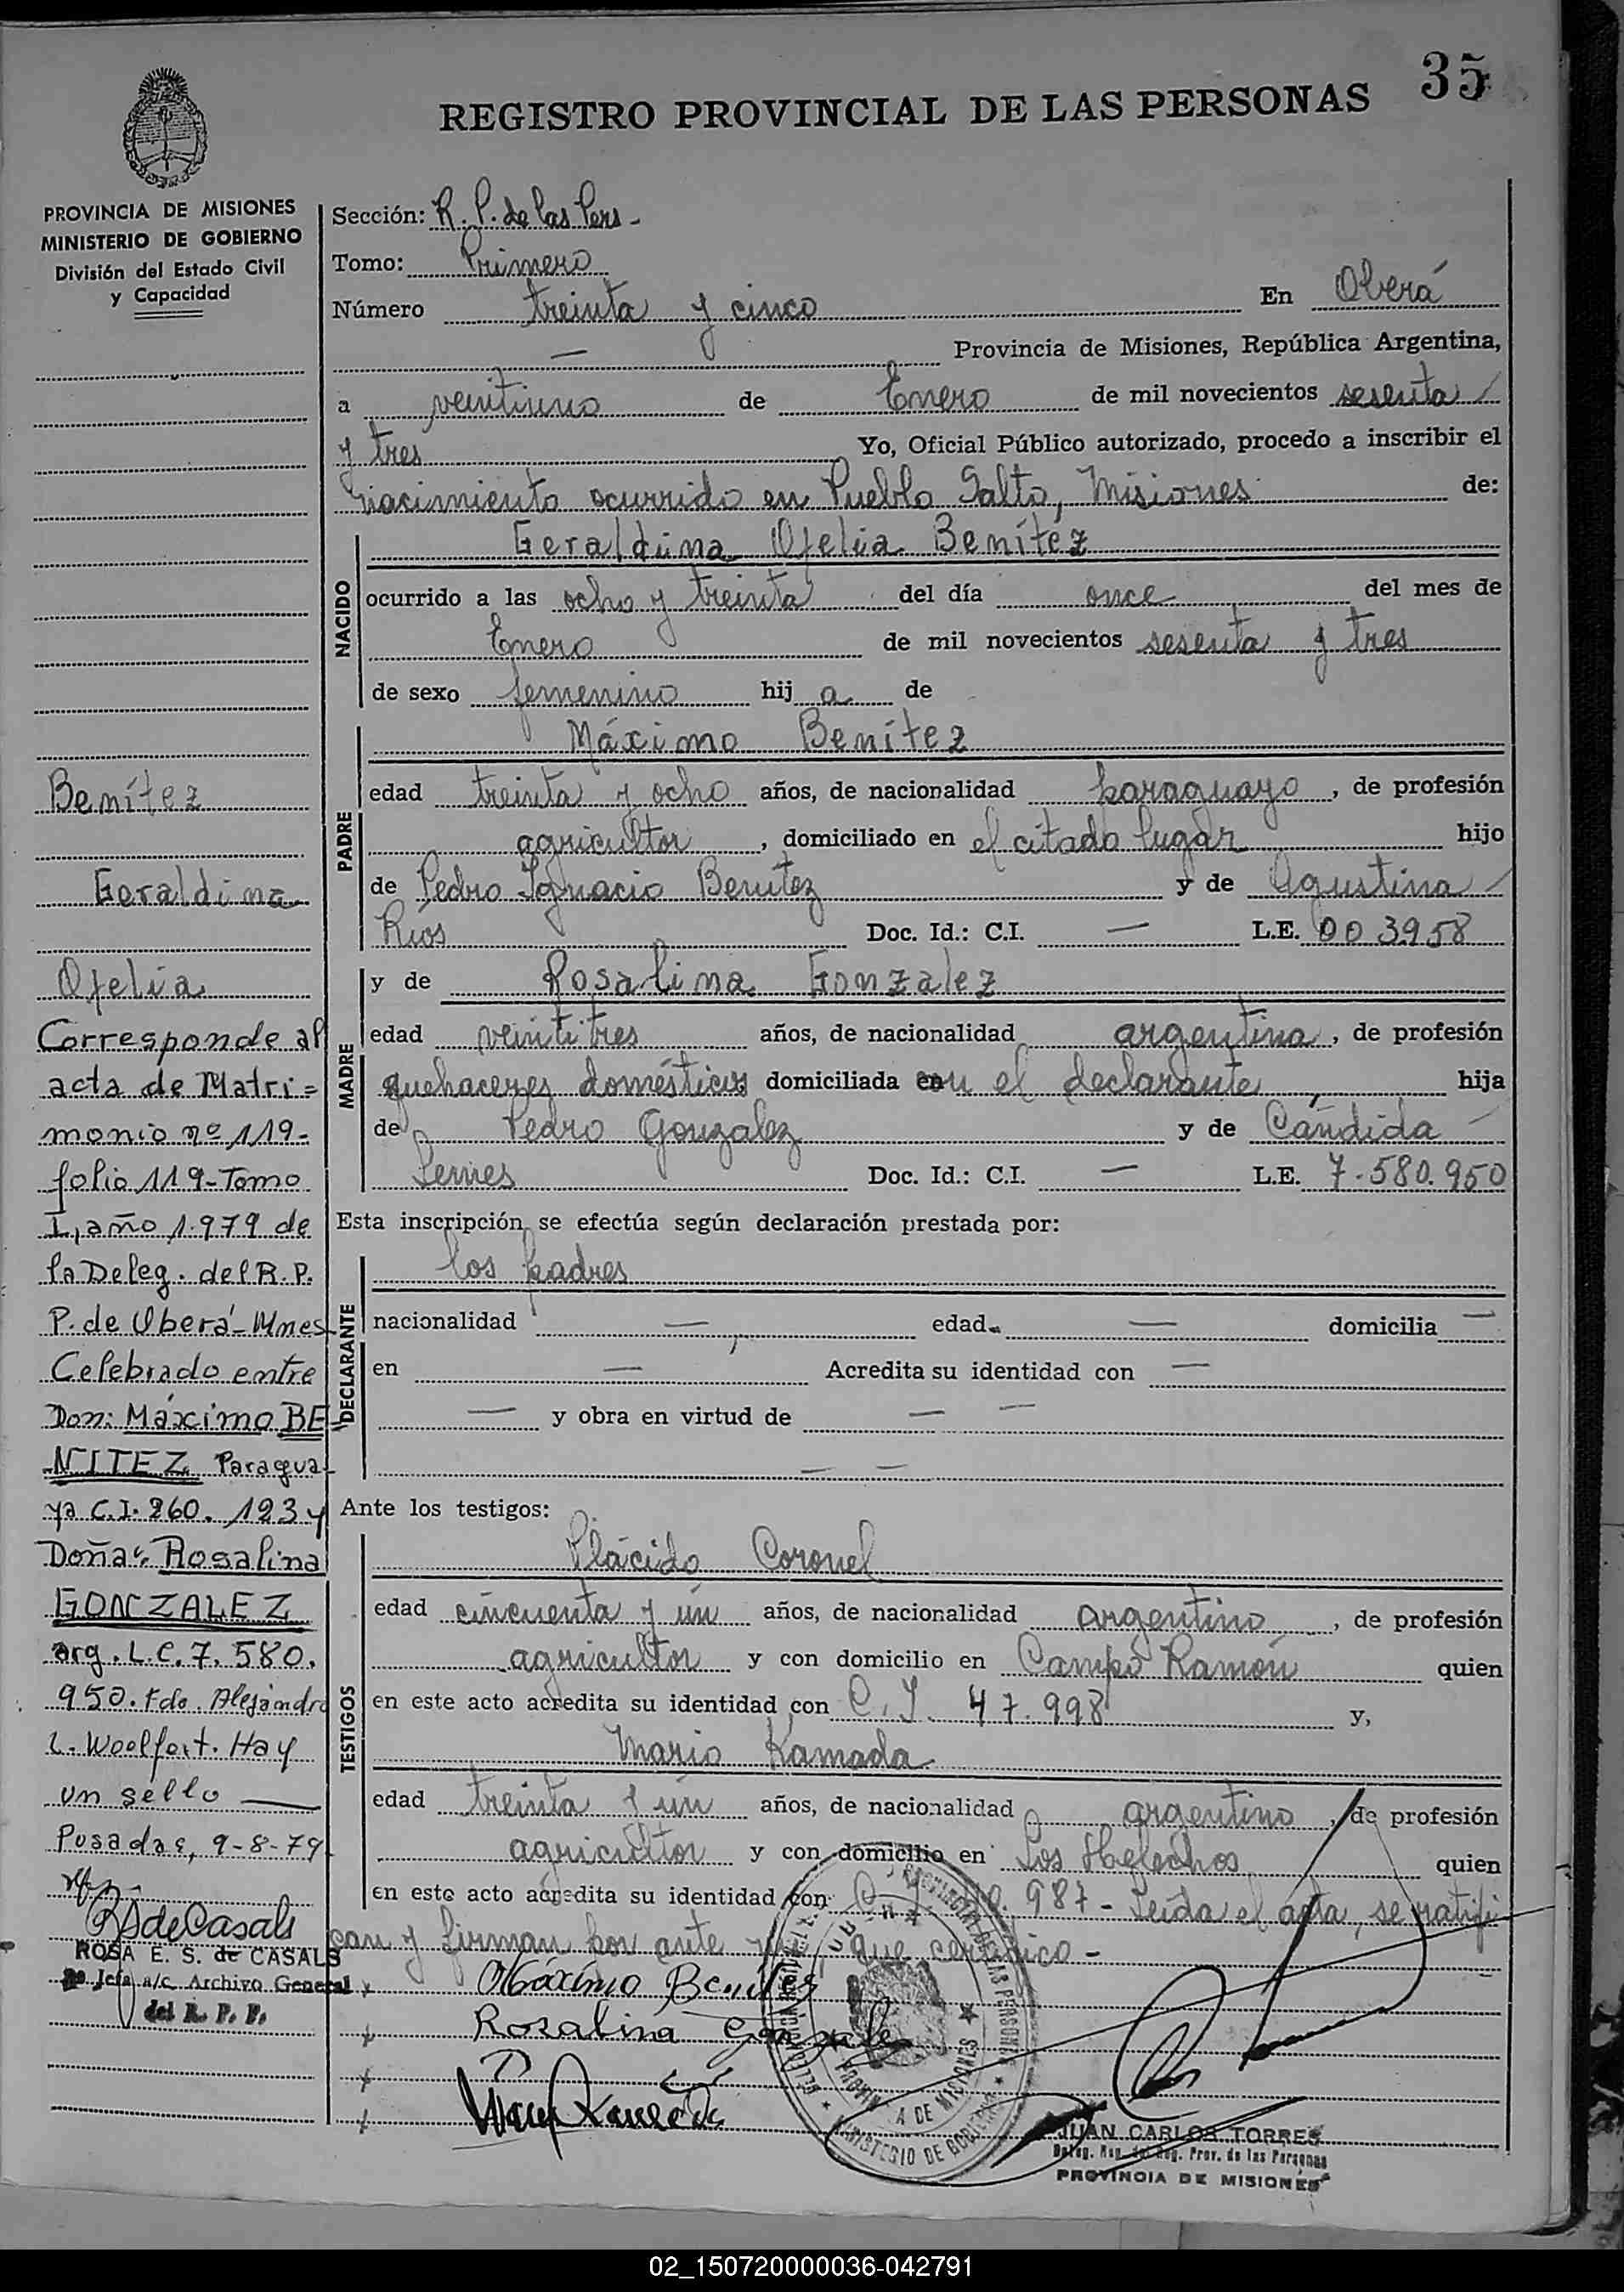 35
REGISTRO PROVINCIAL DE LAS PERSONAS
PROVINCIA DE MISIONES
MINISTERIO DE GOBIERNO
División del Estado Civil
y Capacidad
Sección: R. P. de las Pers-
Tomo: Primero
Número treinta y cinco En Oberá
— Provincia de Misiones, República Argentina,
a veintiuno de Enero de mil novecientos sesenta /
y tres Yo, Oficial Público autorizado, procedo a inscribir el
nacimiento ocurrido en Pueblo Salto, Misiones de:
NACIDO
Geraldina Ofelia Benítez
ocurrido a las ocho y treinta del día once del mes de
Enero de mil novecientos sesenta y tres
de sexo femenino hij a de
PADRE
Máximo Benítez
edad treinta y ocho años, de nacionalidad paraguayo, de profesión
agricultor, domiciliado en el citado lugar hijo
de Pedro Ignacio Benitez y de Agustina /
Ríos Doc. Id.: C.I. — L.E. 003958
MADRE
y de Rosalina Gonzalez
edad veintitres años, de nacionalidad argentina, de profesión
quehaceres domésticos domiciliada con el declarante hija
de Pedro Gonzalez y de Cándida —
Doc. Id.: C.I. — L.E. 7.580.950
Esta inscripción se efectúa según declaración prestada por:
DECLARANTE
los padres
nacionalidad — edad — domicilia —
en — Acredita su identidad con —
— y obra en virtud de — —
— —
Ante los testigos:
TESTIGOS
Plácido Coronel
edad cincuenta y un años, de nacionalidad argentino, de profesión
agricultor y con domicilio en Campo Ramón quien
en este acto acredita su identidad con C.I. 47.998 y,
Mario Kamada
edad treinta y un años, de nacionalidad argentino, de profesión
agricultor y con domicilio en Los Helechos quien
en este acto acredita su identidad con 987- Leída el acta, se ratifi
can y firman por ante mi, que certifico-
Máximo Benites
Rosalina Gonzale
JUAN CARLOS TORRES
Prov. de las Personas
PROVINCIA DE MISIONES
Benítez
Geraldina
Ofelia
Corresponde al
acta de Matri=
monio nº 119-
folio 119-Tomo
I, año 1.979 de
la Deleg. del R.P.
P. de Oberá-Mnes
Celebrado entre
Don: Máximo BE-
NITEZ Paragua-
ya C.I. 260.123 y
Doña: Rosalina
GONZALEZ
arg. L.C. 7.580.
950. Fdo. Alejandro
L. Woolfort. Hay
un sello —
Posadas, 9-8-79
RSdeCasals
ROSA E. S. de CASALS
Jefa a/c Archivo General
del R. P. P.
MINISTERIO DE GOBIERNO
02_150720000036-042791